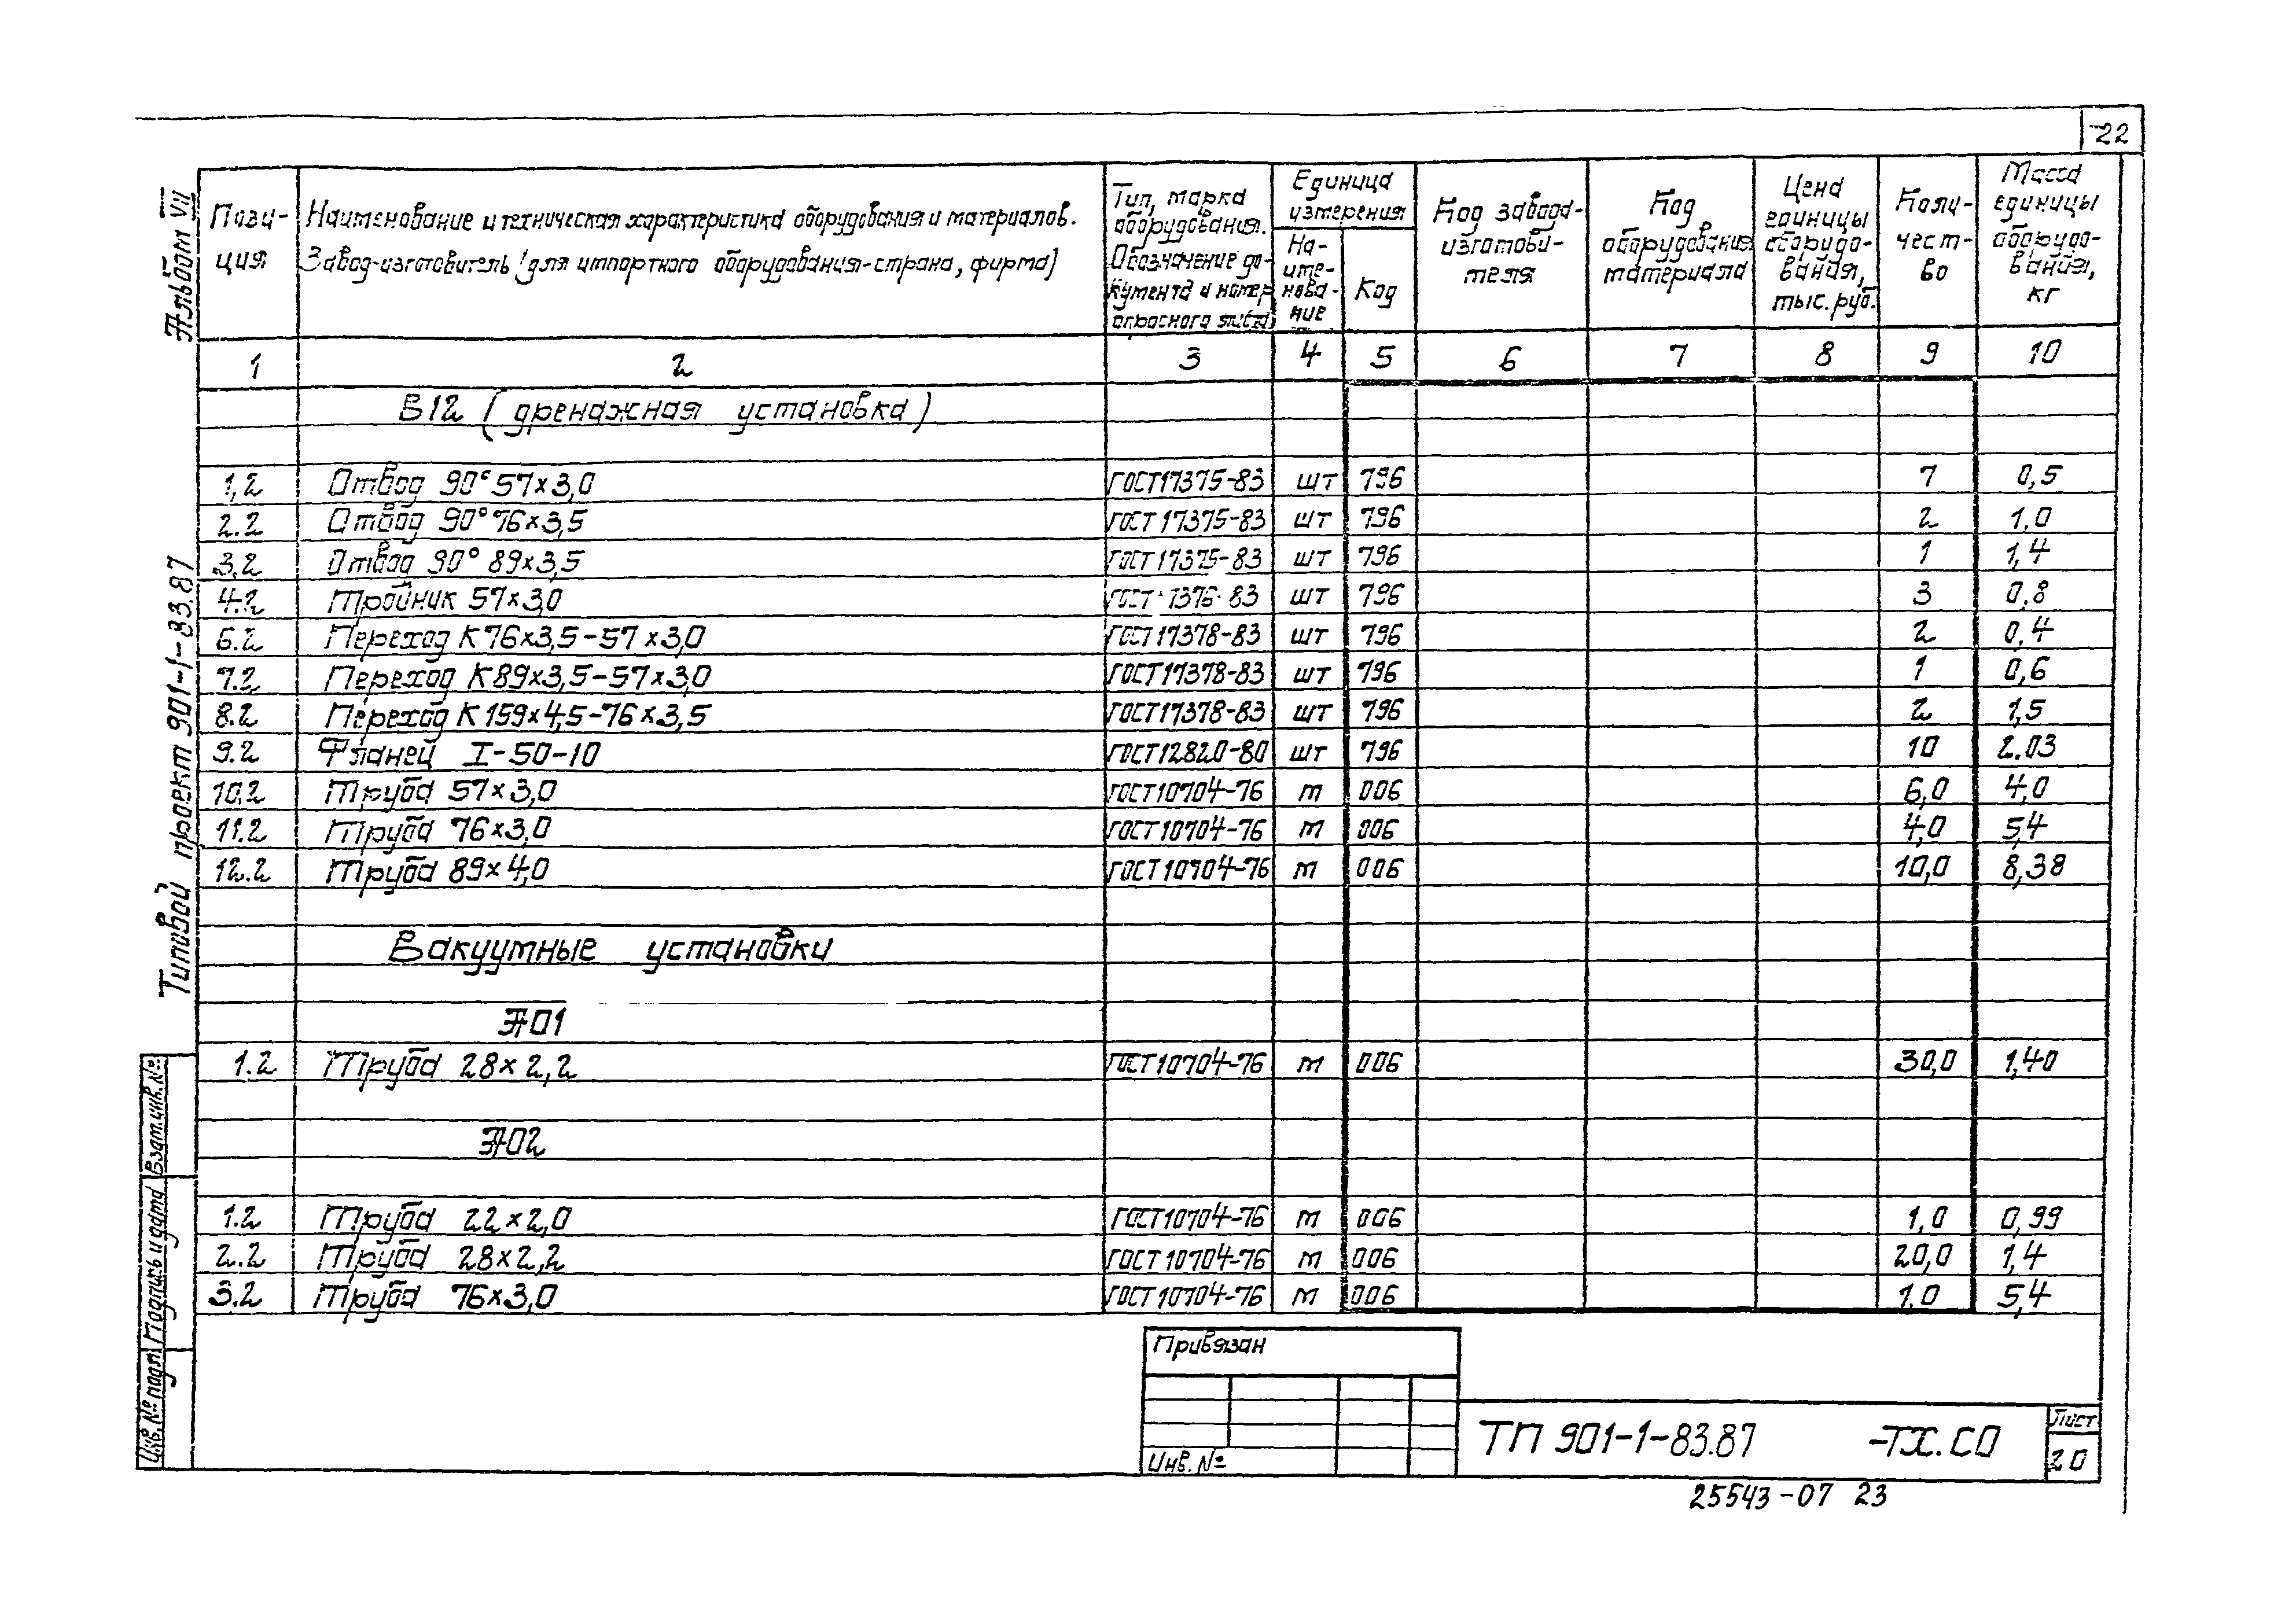 22
Альбом VII
Типовой проект 901-1-83.87
Взам. инв. №
Подпись и дата
Инв. № подл
Пози-
ция
Наименование и техническая характеристика оборудования и материалов.
Завод-изготовитель (для импортного оборудования-страна, фирма)
Тип, марка
оборудования.
Обозначение до-
кумента и номер
опросного листа
Единица
измерения
На-
име-
нова-
ние
Код
Код завода-
изготови-
теля
Код
оборудования
материала
Цена
единицы
оборудо-
вания,
тыс. руб.
Коли-
чест-
во
Масса
единицы
оборудо-
вания,
кг
1 2 3 4 5 6 7 8 9 10
В12 (дренажная установка)
1,2 Отвод 90° 57×3,0 ГОСТ17375-83 шт 796 7 0,5
2.2 Отвод 90° 76×3,5 ГОСТ 17375-83 шт 796 2 1,0
3.2 Отвод 90° 89×3,5 ГОСТ 17375-83 шт 796 1 1,4
4.2 Тройник 57×3,0 ГОСТ 17376-83 шт 796 3 0,8
6.2 Переход К 76×3,5-57×3,0 ГОСТ 17378-83 шт 796 2 0,4
7.2 Переход К 89×3,5-57×3,0 ГОСТ17378-83 шт 796 1 0,6
8.2 Переход К 159×4,5-76×3,5 ГОСТ17378-83 шт 796 2 1,5
9.2 Фланец I-50-10 ГОСТ12820-80 шт 796 10 2.03
10.2 Труба 57×3,0 ГОСТ10704-76 м 006 6,0 4,0
11.2 Труба 76×3,0 ГОСТ10704-76 м 006 4,0 5,4
12.2 Труба 89×4,0 ГОСТ10704-76 м 006 10,0 8,38
Вакуумные установки
А01
1.2 Труба 28×2,2 ГОСТ10704-76 м 006 30,0 1,40
А02
1.2 Труба 22×2,0 ГОСТ10704-76 м 006 1,0 0,99
2.2 Труба 28×2,2 ГОСТ10704-76 м 006 20,0 1,4
3.2 Труба 76×3,0 ГОСТ10704-76 м 006 1.0 5,4
Привязан
Инв. №
ТП 901-1-83.87 -ТХ.СО
Лист
20
25543-07 23